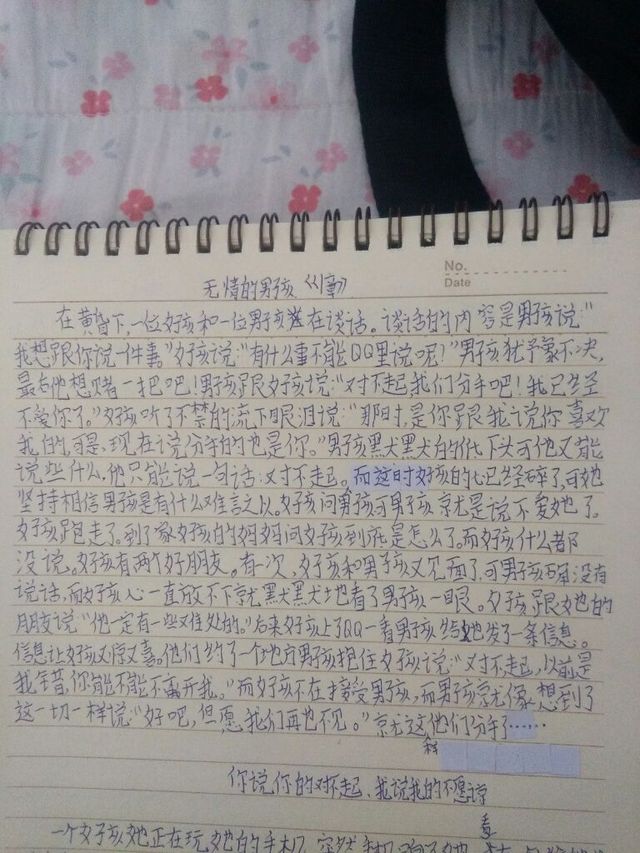 No.
Date
无情的男孩《小事》
在黄昏下,一位女孩和一位男孩在谈话。谈话的内容是男孩说:"
我想跟你说一件事"女孩说:"有什么事不能QQ里说呢!"男孩犹予象不决,
最后他想赌一把吧!男孩跟女孩说:"对不起我们分手吧!我已经
不爱你了。"女孩听了不禁的流下眼泪说:"那时,是你跟我说你喜欢
我的,可是,现在说分手的也是你。"男孩默默的低下头可他又能
说些什么,他只能说一句话:对不起。而这时女孩的心已经碎了,可她
坚持相信男孩是有什么难言之以。女孩问男孩可男孩就是说不爱她了。
女孩跑走了。到了家女孩的妈妈问女孩到底是怎么了。而女孩什么都
没说。女孩有两个好朋友。有一次,女孩和男孩又见面了,可男孩确没有
说话,而女孩心一直放不下就默默地看了男孩一眼。女孩跟她的
朋友说"他一定有一些难处的。"后来女孩上了QQ一看男孩给她发了一条信息。
信息让女孩又惊又喜。他们约了一个地方男孩抱住女孩说:"对不起,以前是
我错,你能不能不离开我。"而女孩不在接受男孩,而男孩就像想到了
这一切一样说:"好吧,但愿我们再也不见。"就这他们分手了……
样
你说你的对不起、我说我的不愿谅
一个女孩她正在玩她的手机,突然手机响了她